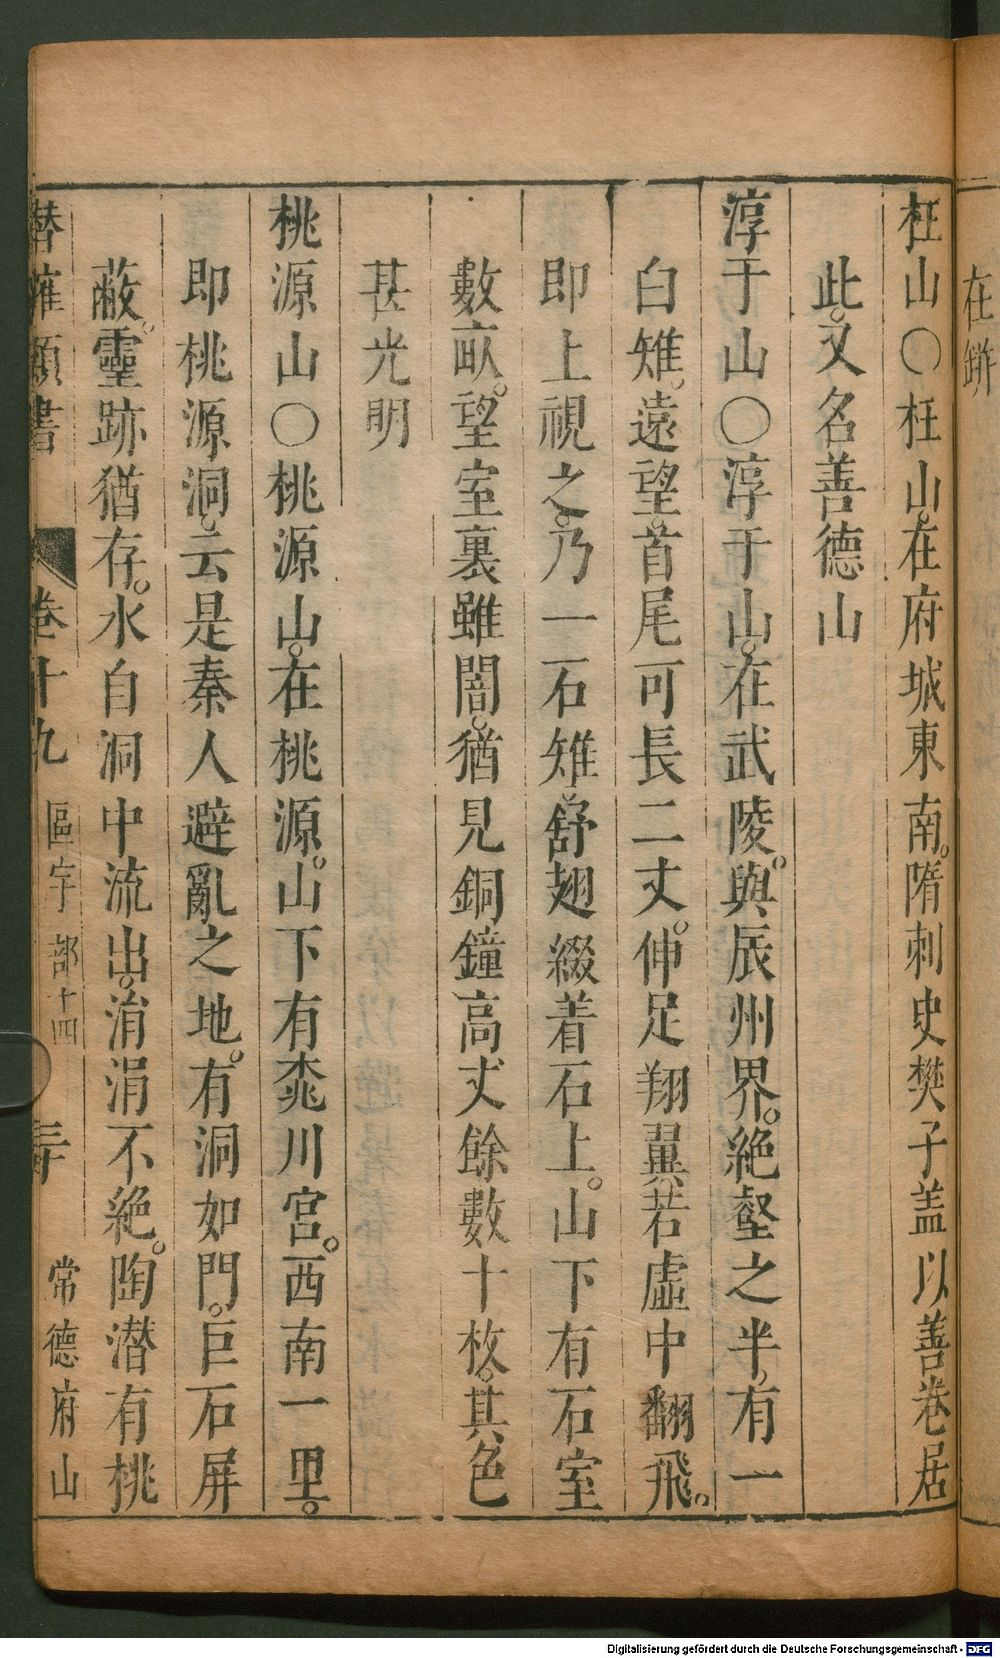 在鎊
枉山〇枉山。在府城東南。隋刺史樊子盖以善卷居
此。又名善德山
淳于山〇淳于山。在武陵。與辰州界。絶壑之半。有一
白雉。遠望。首尾可長二丈。伸足翔翼。若虛中翻飛。
即上視之。乃一石雉。舒翅綴着石上。山下有石室
數畝。望室裏雖闇。猶見銅鐘高丈餘數十枚。其色
甚光明
桃源山〇桃源山。在桃源。山下有桃川宮。西南一里。
即桃源洞。云是秦人避亂之地。有洞如門。巨石屏
蔽。靈跡猶存。水自洞中流出。涓涓不絶。陶潜有桃
潜確類書 卷十九 區宇部十四 三十 常德府山
Digitalisierung gefördert durch die Deutsche Forschungsgemeinschaft - DFG